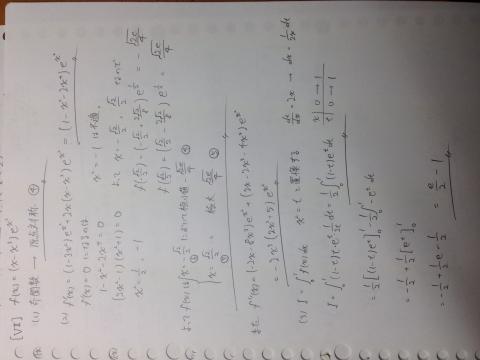 [VII] f(x)=(x-x³)e^{x²}
(1) 奇関数 → 原点対称 ④
(2) f'(x)=(1-3x²)e^{x²}+2x(x-x³)e^{x²}=(1-x²-2x⁴)e^{x²}
f'(x)=0 になるのは
1-x²-2x⁴=0
(2x²-1)(x²+1)=0
x²=1/2, -1 x²=-1は不適。
よって x=-√2/2, √2/2 なので
f(-√2/2)=(-√2/2+2√2/8)e^{1/2}=-√2e/4
f(√2/2)=(√2/2-2√2/8)e^{1/2}=√2e/4
よって f(x)は x=-√2/2 において極小値 -√2e/4
x=√2/2 極大 √2e/4
また f''(x)=(-2x-8x³)e^{x²}+(2x-2x³-4x⁵)e^{x²}
=-2x³(2x²+5)e^{x²}
(3) I=∫₀¹f(x)dx x²=t と置換する dt/dx=2x → dx=1/2x dt
I=∫₀¹(1-t)e^t 1/2 dt=1/2∫₀¹(1-t)e^t dt x|0→1
t|0→1
=1/2[(1-t)e^t]₀¹-1/2∫₀¹-e^t dt
=-1/2+1/2[e^t]₀¹
=-1/2+1/2e-1/2 =e/2-1